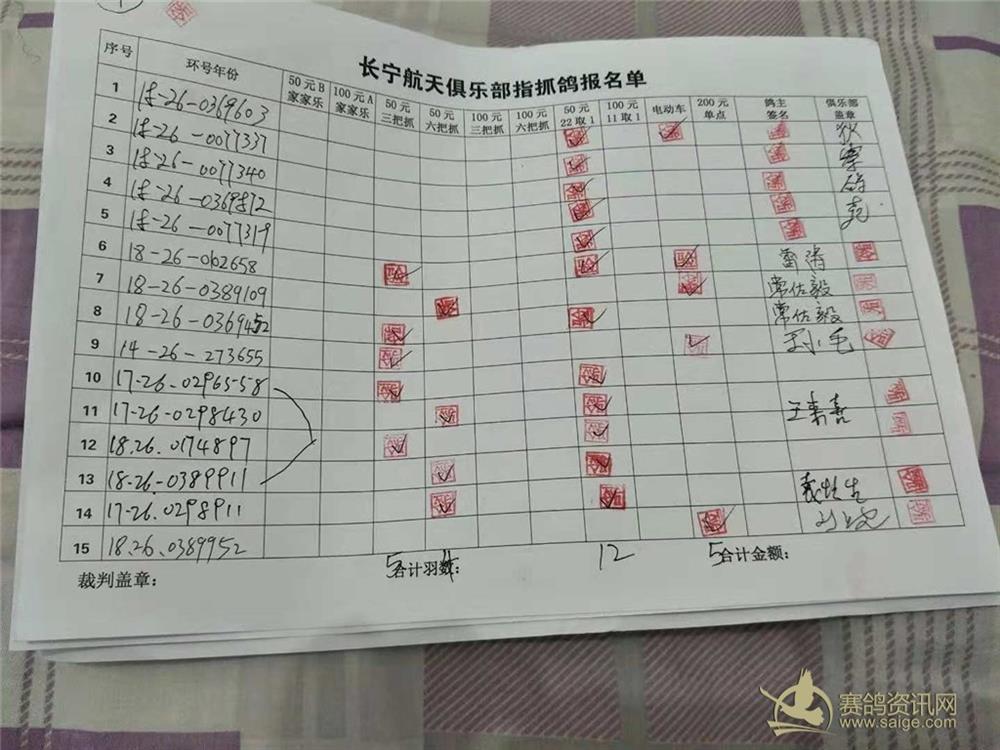 1
长宁航天俱乐部指抓鸽报名单
序号 环号年份 50元B家家乐 100元A家家乐 50元三把抓 50元六把抓 100元三把抓 100元六把抓 50元22取1 100元11取1 电动车 200元单点 鸽主签名 俱乐部盖章
1 18-26-0369603
2 18-26-0077337
3 18-26-0077340
4
5 18-26-0077319
6 18-26-0102658
7 18-26-0389109 常佐毅
8 18-26-0369452 常佐毅
9 14-26-273655 王小毛
10 17-26-0296558
11 17-26-0298430
12 18.26.0174897
13 18-26-0389911
14 17-26.0298911
15 18.26.0389952
裁判盖章： 5 合计羽数： 12 5 合计金额：
赛鸽资讯网
www.saige.com